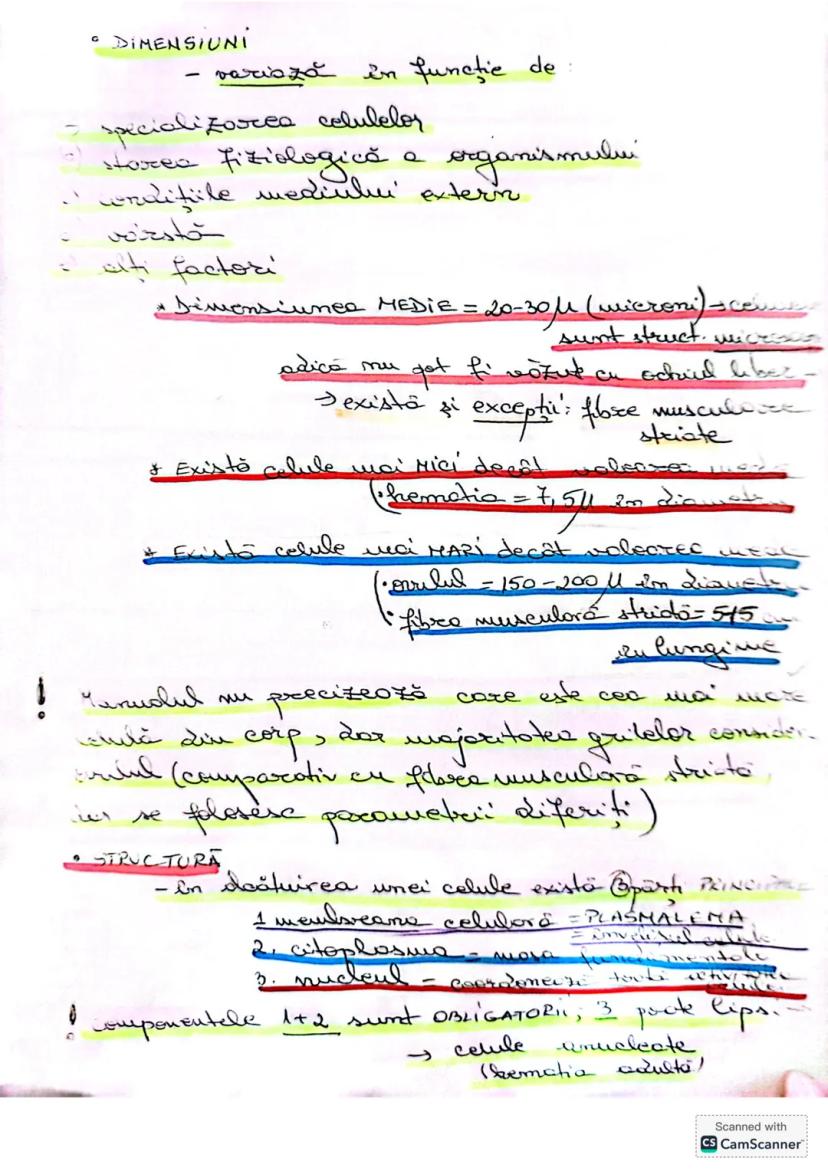 ° DIMENSIUNI
- variază în funcție de :
- specializarea celulelor
starea fiziologică a organismului
condițiile mediului extern
- vârstă
- alți factori
* Dimensiunea MEDIE = 20-30 µ (microni) →
sunt struct.
adică nu pot fi văzute cu ochiul liber -
→ există și excepții: fibre musculare
striate
* Există celule mai MICI decât valoarea
(• hematia = 7,5µ în
* Există celule mai MARI decât valoarea
• ovulul = 150-200 µ în
• fibra musculară striată = 5-15
în lungime
! Manualul nu precizează care este cea mai mare
celulă din corp, dar majoritatea grilelor
ovulul (comparativ cu fibra musculară striată,
se folosesc parametrii diferiți)
• STRUCTURĂ
- În alcătuirea unei celule există 3 părți
1 membrana celulară = PLASMALEMA
2. citoplasma = masa
3. nucleul - coordonează toată
! componentele 1+2 sunt OBLIGATORII; 3 poate
→ celule anucleate
(hematia adultă)
Scanned with
CS CamScanner